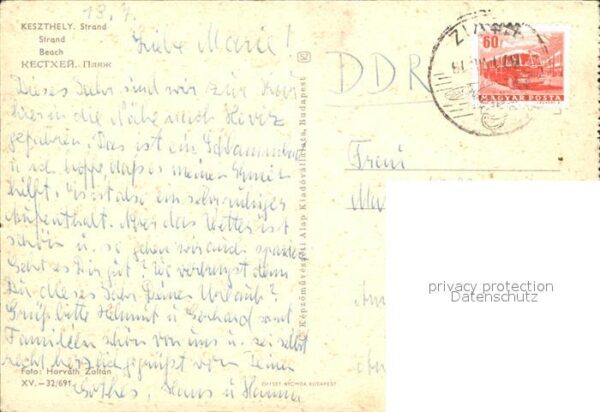 13. 7.
KESZTHELY. Strand
Strand
Beach
КЕСТХЕЙ. Пляж
Liebe Marie!
Dieses Jahr sind wir zur Kur
in die Nähe nach Heviz
gefahren. Das ist ein
u. ich hoffe, daß es meinen
hilft. Es ist also ein sehr ruhiger
Aufenthalt. Aber das Wetter ist
schön u. so gehen wir auch
Geht es Dir gut? Wo verbringst denn
Du dieses Jahr Deinen Urlaub?
Grüß bitte Helmut u Gerhard samt
Familien schön von uns u. sei selbst
recht herzlich gegrüßt von Deinen
Hans u Hanna
Foto: Horváth Zoltán
XV.—32/691
OFFSET NYOMDA BUDAPEST
Képzőművészeti Alap Kiadóvállalata, Budapest
DDR
60
MAGYAR POSTA
Frau
privacy protection
Datenschutz